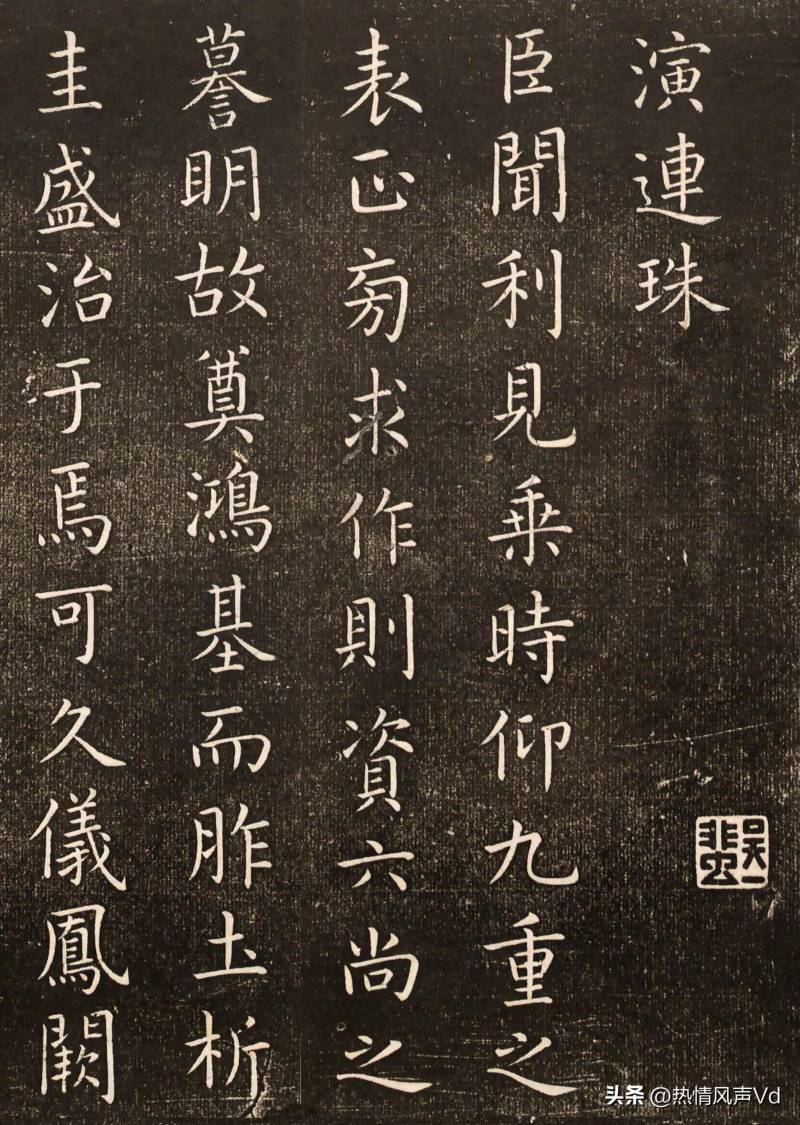 演連珠
臣聞利見乗時仰九重之
表正旁求作則資六尚之
謩明故奠鴻基而胙土析
圭盛治于焉可久儀鳳闕
吳一蜚
头条 @热情风声Vd